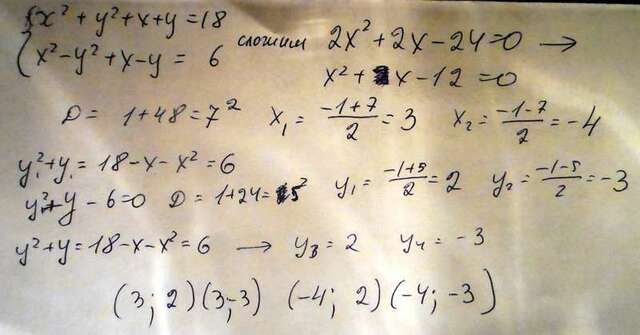 {x² + y² + x + y = 18
x² - y² + x - y = 6 сложим 2x² + 2x - 24 = 0 →
x² + x - 12 = 0
D = 1 + 48 = 7² x₁ = (-1+7)/2 = 3 x₂ = (-1-7)/2 = -4
y₁² + y₁ = 18 - x - x² = 6
y² + y - 6 = 0 D = 1 + 24 = 5² y₁ = (-1+5)/2 = 2 y₂ = (-1-5)/2 = -3
y² + y = 18 - x - x² = 6 → y₃ = 2 y₄ = -3
(3; 2) (3; -3) (-4; 2) (-4; -3)